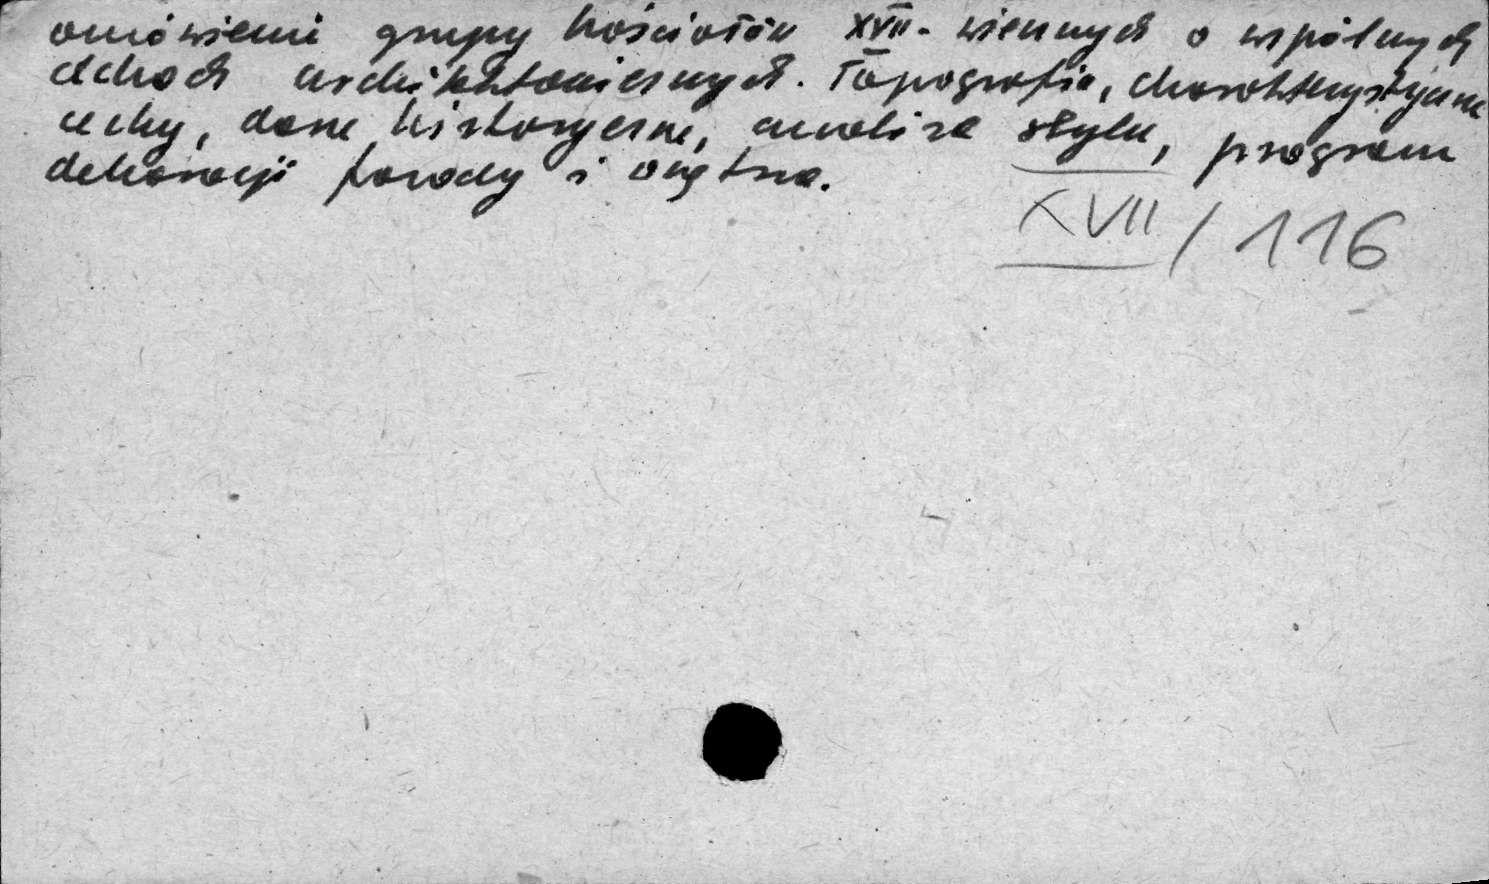 omówienie grupy kościołów XVII-wiecznych o wspólnych
cechach architektonicznych. Topografia, charakterystyczne
cechy, dane historyczne, analiza stylu, program
dekoracji fasady i wnętrza.
XVII / 116